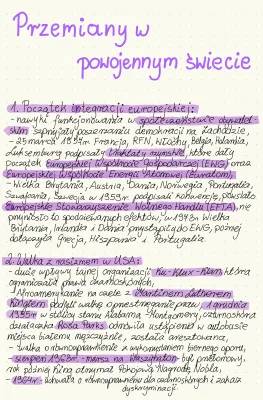 Przemiany w
powojennym świecie
1. Początek integracji europejskiej:
- nawyki funkcjonowania w społeczeństwie obywatel-
skim sprzyjały poszerzaniu demokracji na Zachodzie,
- 25 marca 1957r. Francja, RFN, Włochy, Belgia, Holandia,
Luksemburg podpisały Traktaty rzymskie, które dały
początek Europejskiej Wspólnocie Gospodarczej (EWG) oraz
Europejskiej Wspólnocie Energii Atomowej (Euratom),
- Wielka Brytania, Austria, Dania, Norwegia, Portugalia,
Szwajcaria, Szwecja w 1959r. podpisali konwencję, powstało
Europejskie Stowarzyszenie Wolnego Handlu (EFTA), nie
przyniosło to spodziewanych efektów, w 1973r. Wielka
Brytania, Irlandia i Dania przystąpiły do EWG, później
dołączyła Grecja, Hiszpania i Portugalia.
2. Walka z rasizmem w USA:
- duże wpływy tajnej organizacji Ku-Klux-Klan, która
ograniczała prawa czarnoskórych,
- Afroamerykanie na czele z Martinem Lutherem
Kingiem podjęli walkę o przestrzeganie praw, 1 grudnia
1955r. w stolicy stanu Alabama, Montgomery, czarnoskóra
działaczka Rosa Parks odmówiła ustąpienia w autobusie
miejsca białemu mężczyźnie, została aresztowana,
- walka o równouprawnienie z wykorzystaniem biernego oporu,
- sierpień 1963r. - marsz na Waszyngton był przełomowy,
rok później King otrzymał Pokojową Nagrodę Nobla,
- 1964r. - uchwała o równouprawnieniu dla czarnoskórych i zakaz
dyskryminacji.